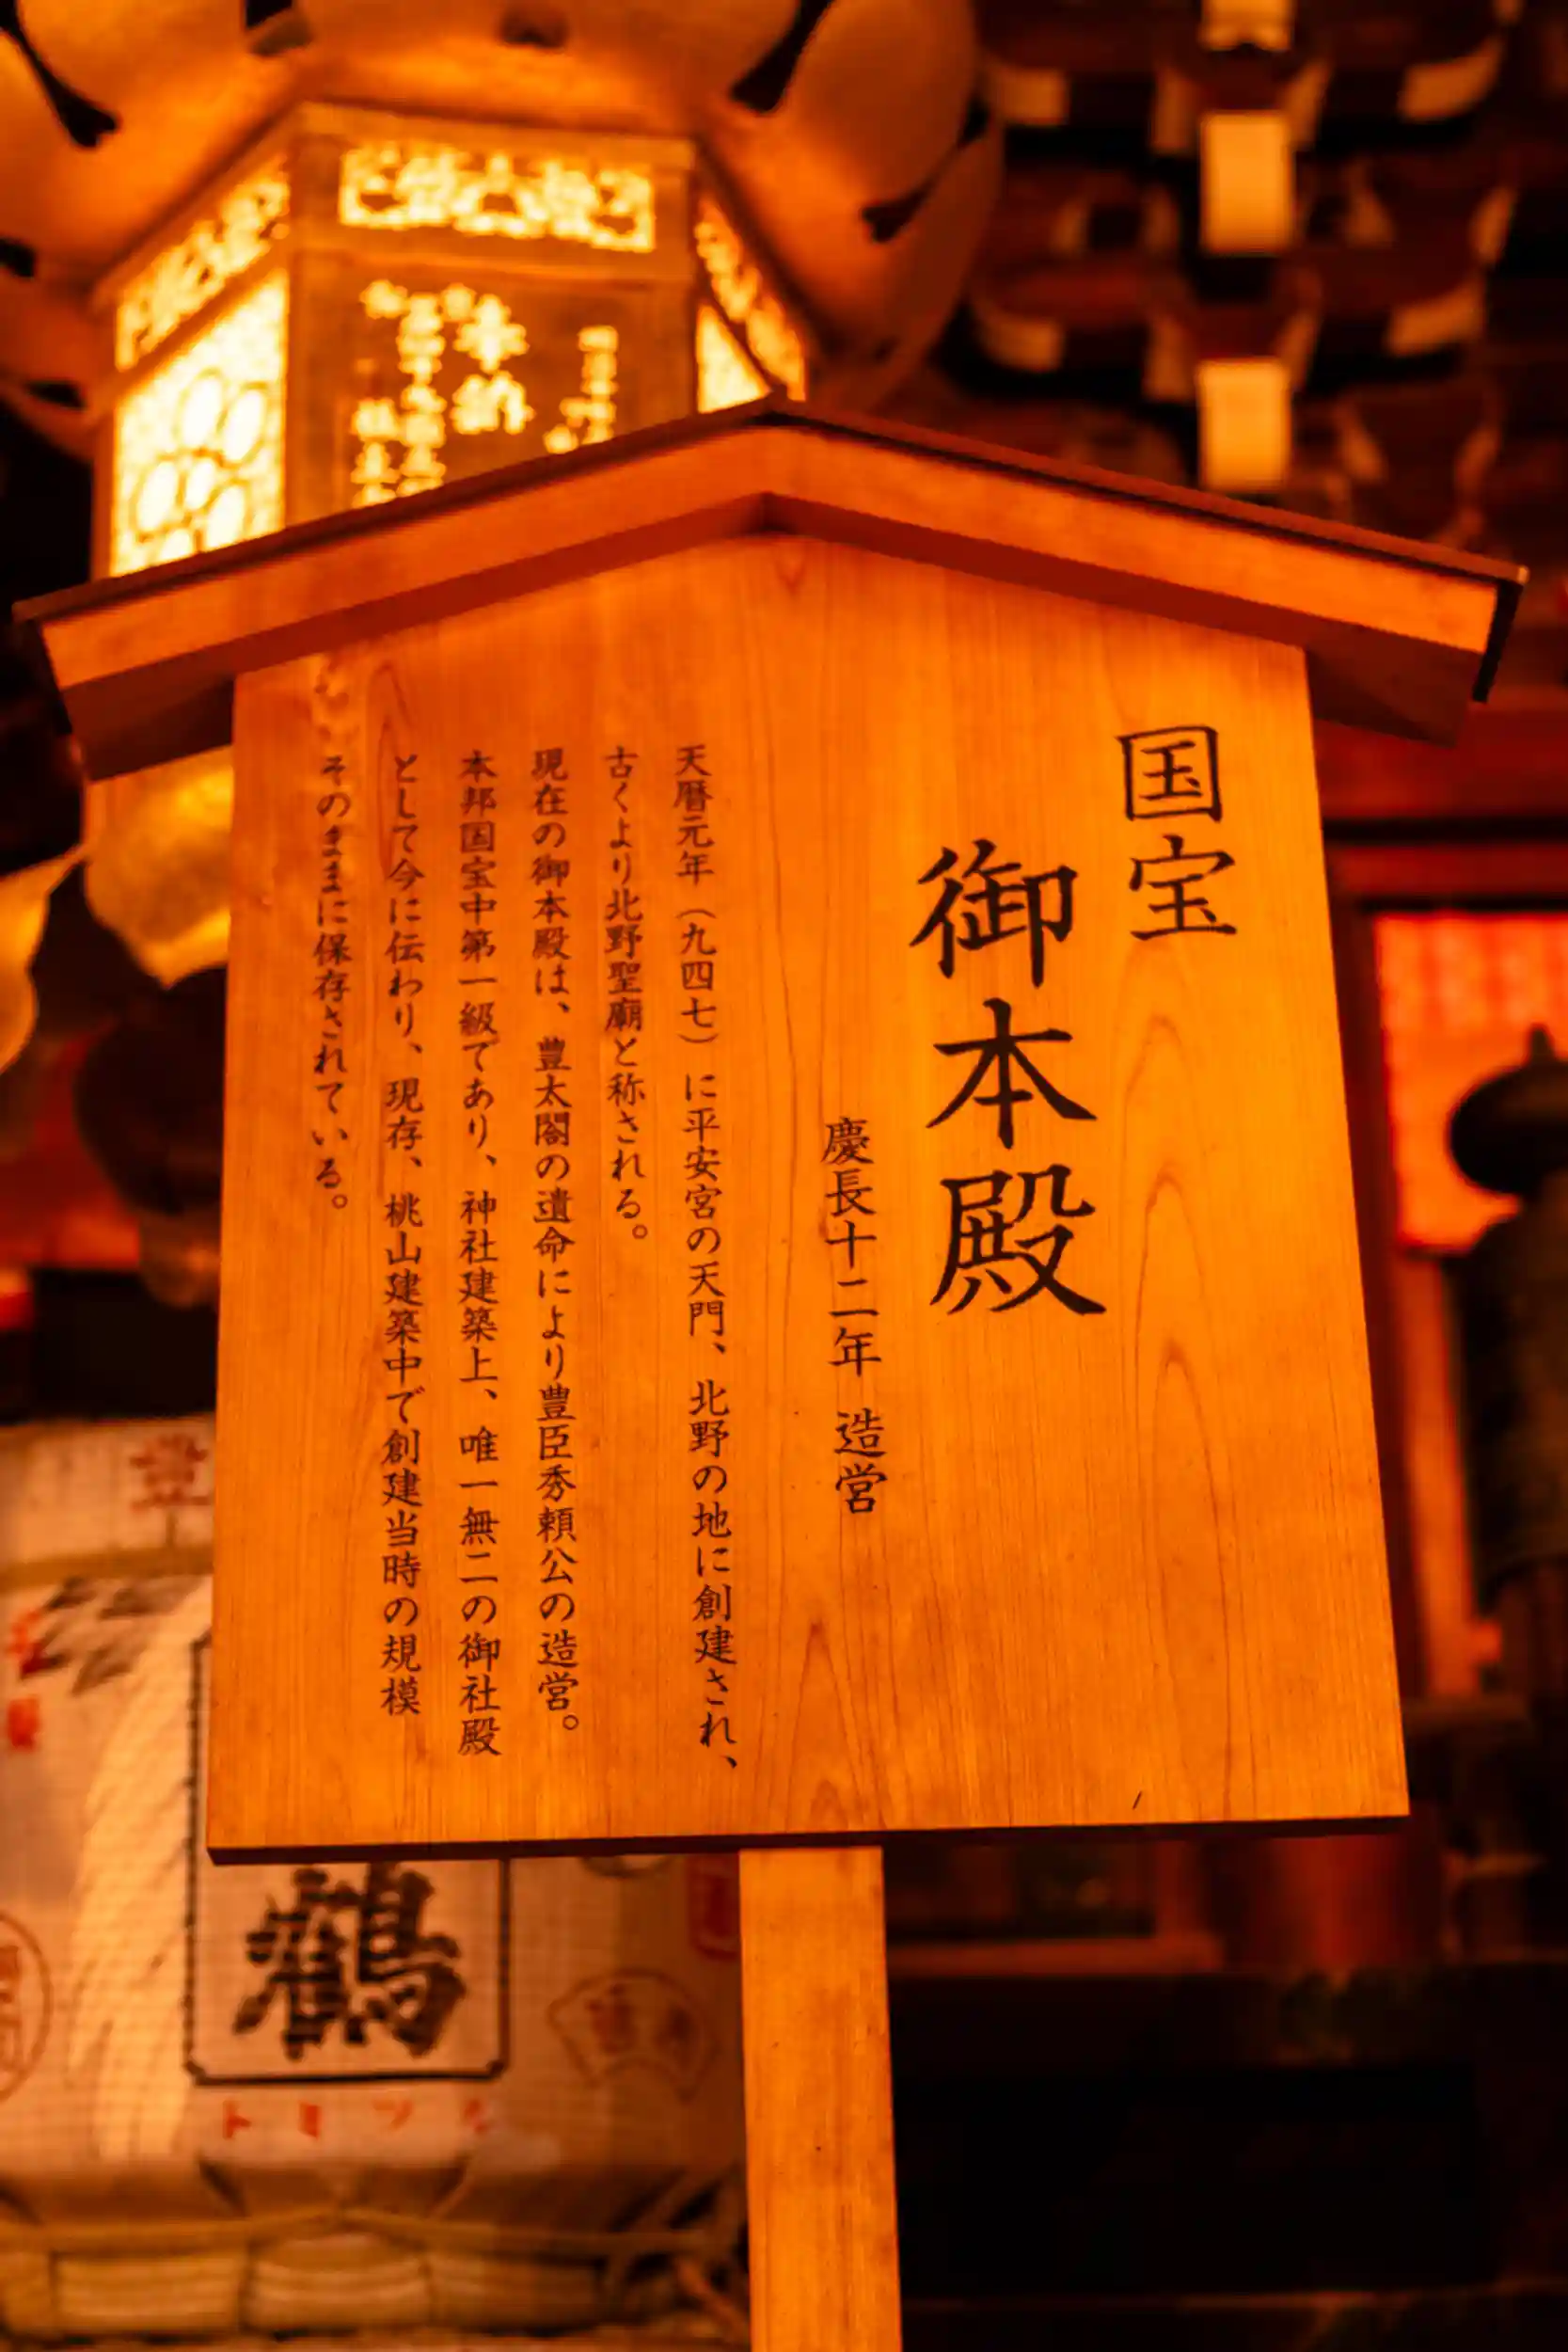 国宝
御本殿
慶長十二年 造営
天暦元年（九四七）に平安宮の天門、北野の地に創建され、
古くより北野聖廟と称される。
現在の御本殿は、豊太閤の遺命により豊臣秀頼公の造営。
本邦国宝中第一級であり、神社建築上、唯一無二の御社殿
として今に伝わり、現存、桃山建築中で創建当時の規模
そのままに保存されている。
奉納
鶴